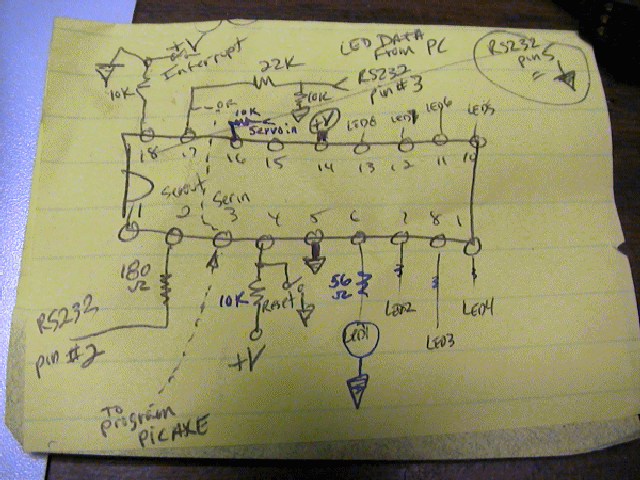 +V
Interrupt
10K
22K
LED DATA
from PC
RS232
pin #3
10K
RS232
pin 5
=
OR
10K
Servoin
+V
LED8
LED7
LED6
LED5
18
17
16
15
14
13
12
11
10
Serout
Serin
1
2
3
4
5
6
7
8
180
Ω
RS232
pin #2
10K
Reset
+V
56
Ω
LED1
LED2
LED3
LED4
To
program
PICAXE